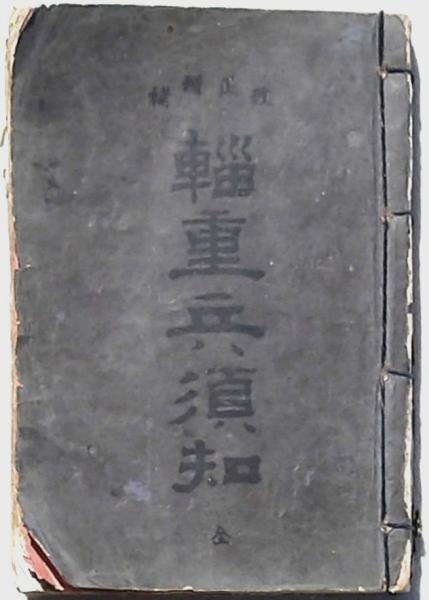 改正增補
輜重兵須知
全